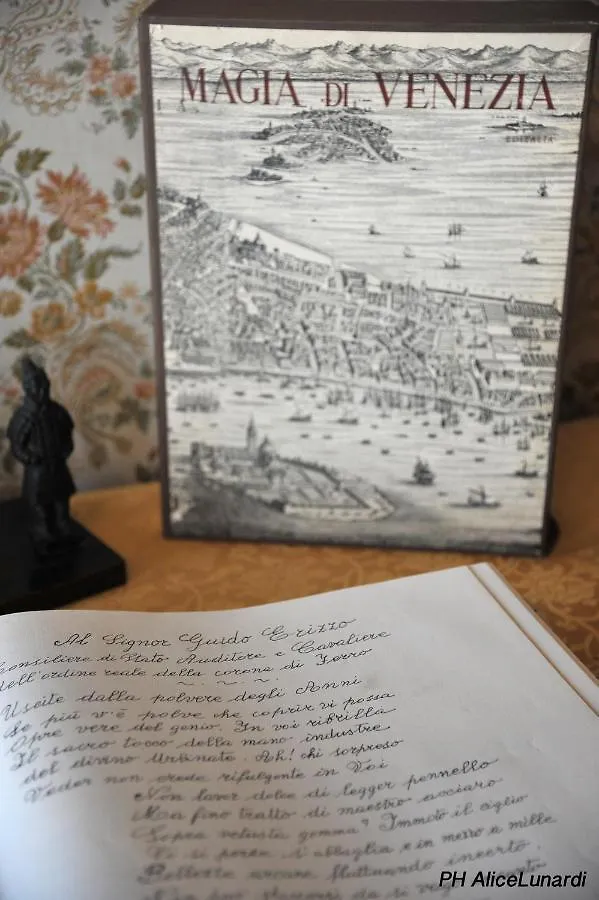 MAGIA DI VENEZIA
EDITALIA
Al Signor Guido Erizzo
Consiliere di Stato Auditore e Cavaliere
dell'ordine reale della corona di Ferro
Uscite dalla polvere degli Anni
Se più v'è polve che coprir vi possa
Opre vere del genio. In voi ribrilla
Il sacro tocco della mano industre
del divino Urbinate. Ah! chi sorpreso
Veder non crede rifulgente in Voi
Non lavor dolce di legger pennello
Ma fino tratto di maestro acciaro
Sopra vetusta gemma? Immoto il ciglio
Vi si perde, s'abbaglia e in mezzo a mille
Bellezze arcane fluttuando incerto.
di se
PH AliceLunardi